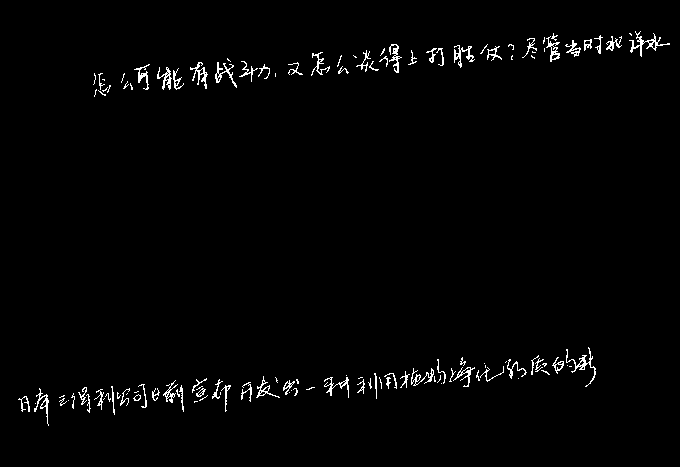 怎么可能有战斗力,又怎么谈得上打胜仗?尽管当时北洋水
日本三得利公司日前宣布开发出一种利用植物净化水质的新